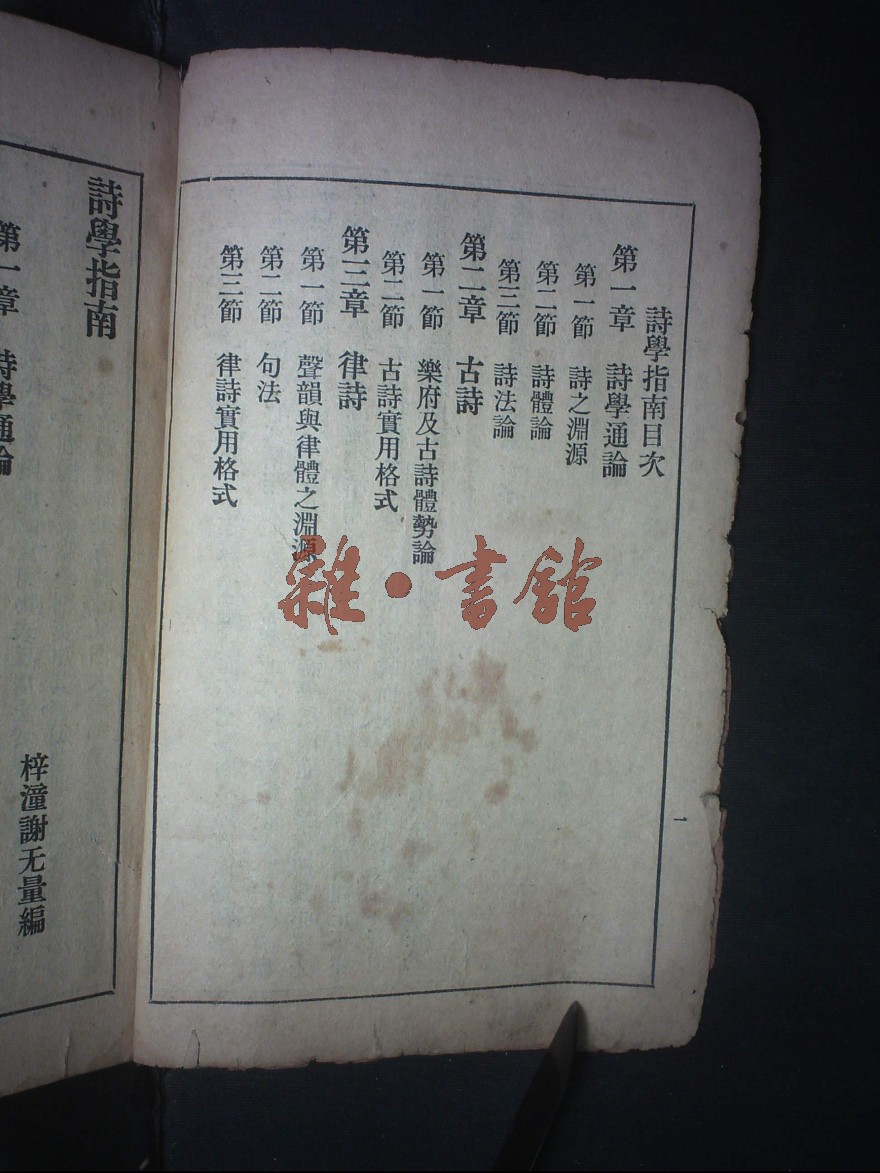 詩學指南目次
第一章 詩學通論
第一節 詩之淵源
第二節 詩體論
第三節 詩法論
第二章 古詩
第一節 樂府及古詩體勢論
第二節 古詩實用格式
第三章 律詩
第一節 聲韻與律體之淵源
第二節 句法
第三節 律詩實用格式
一
詩學指南
梓潼謝无量編
第一章 詩學通論
雜·書館